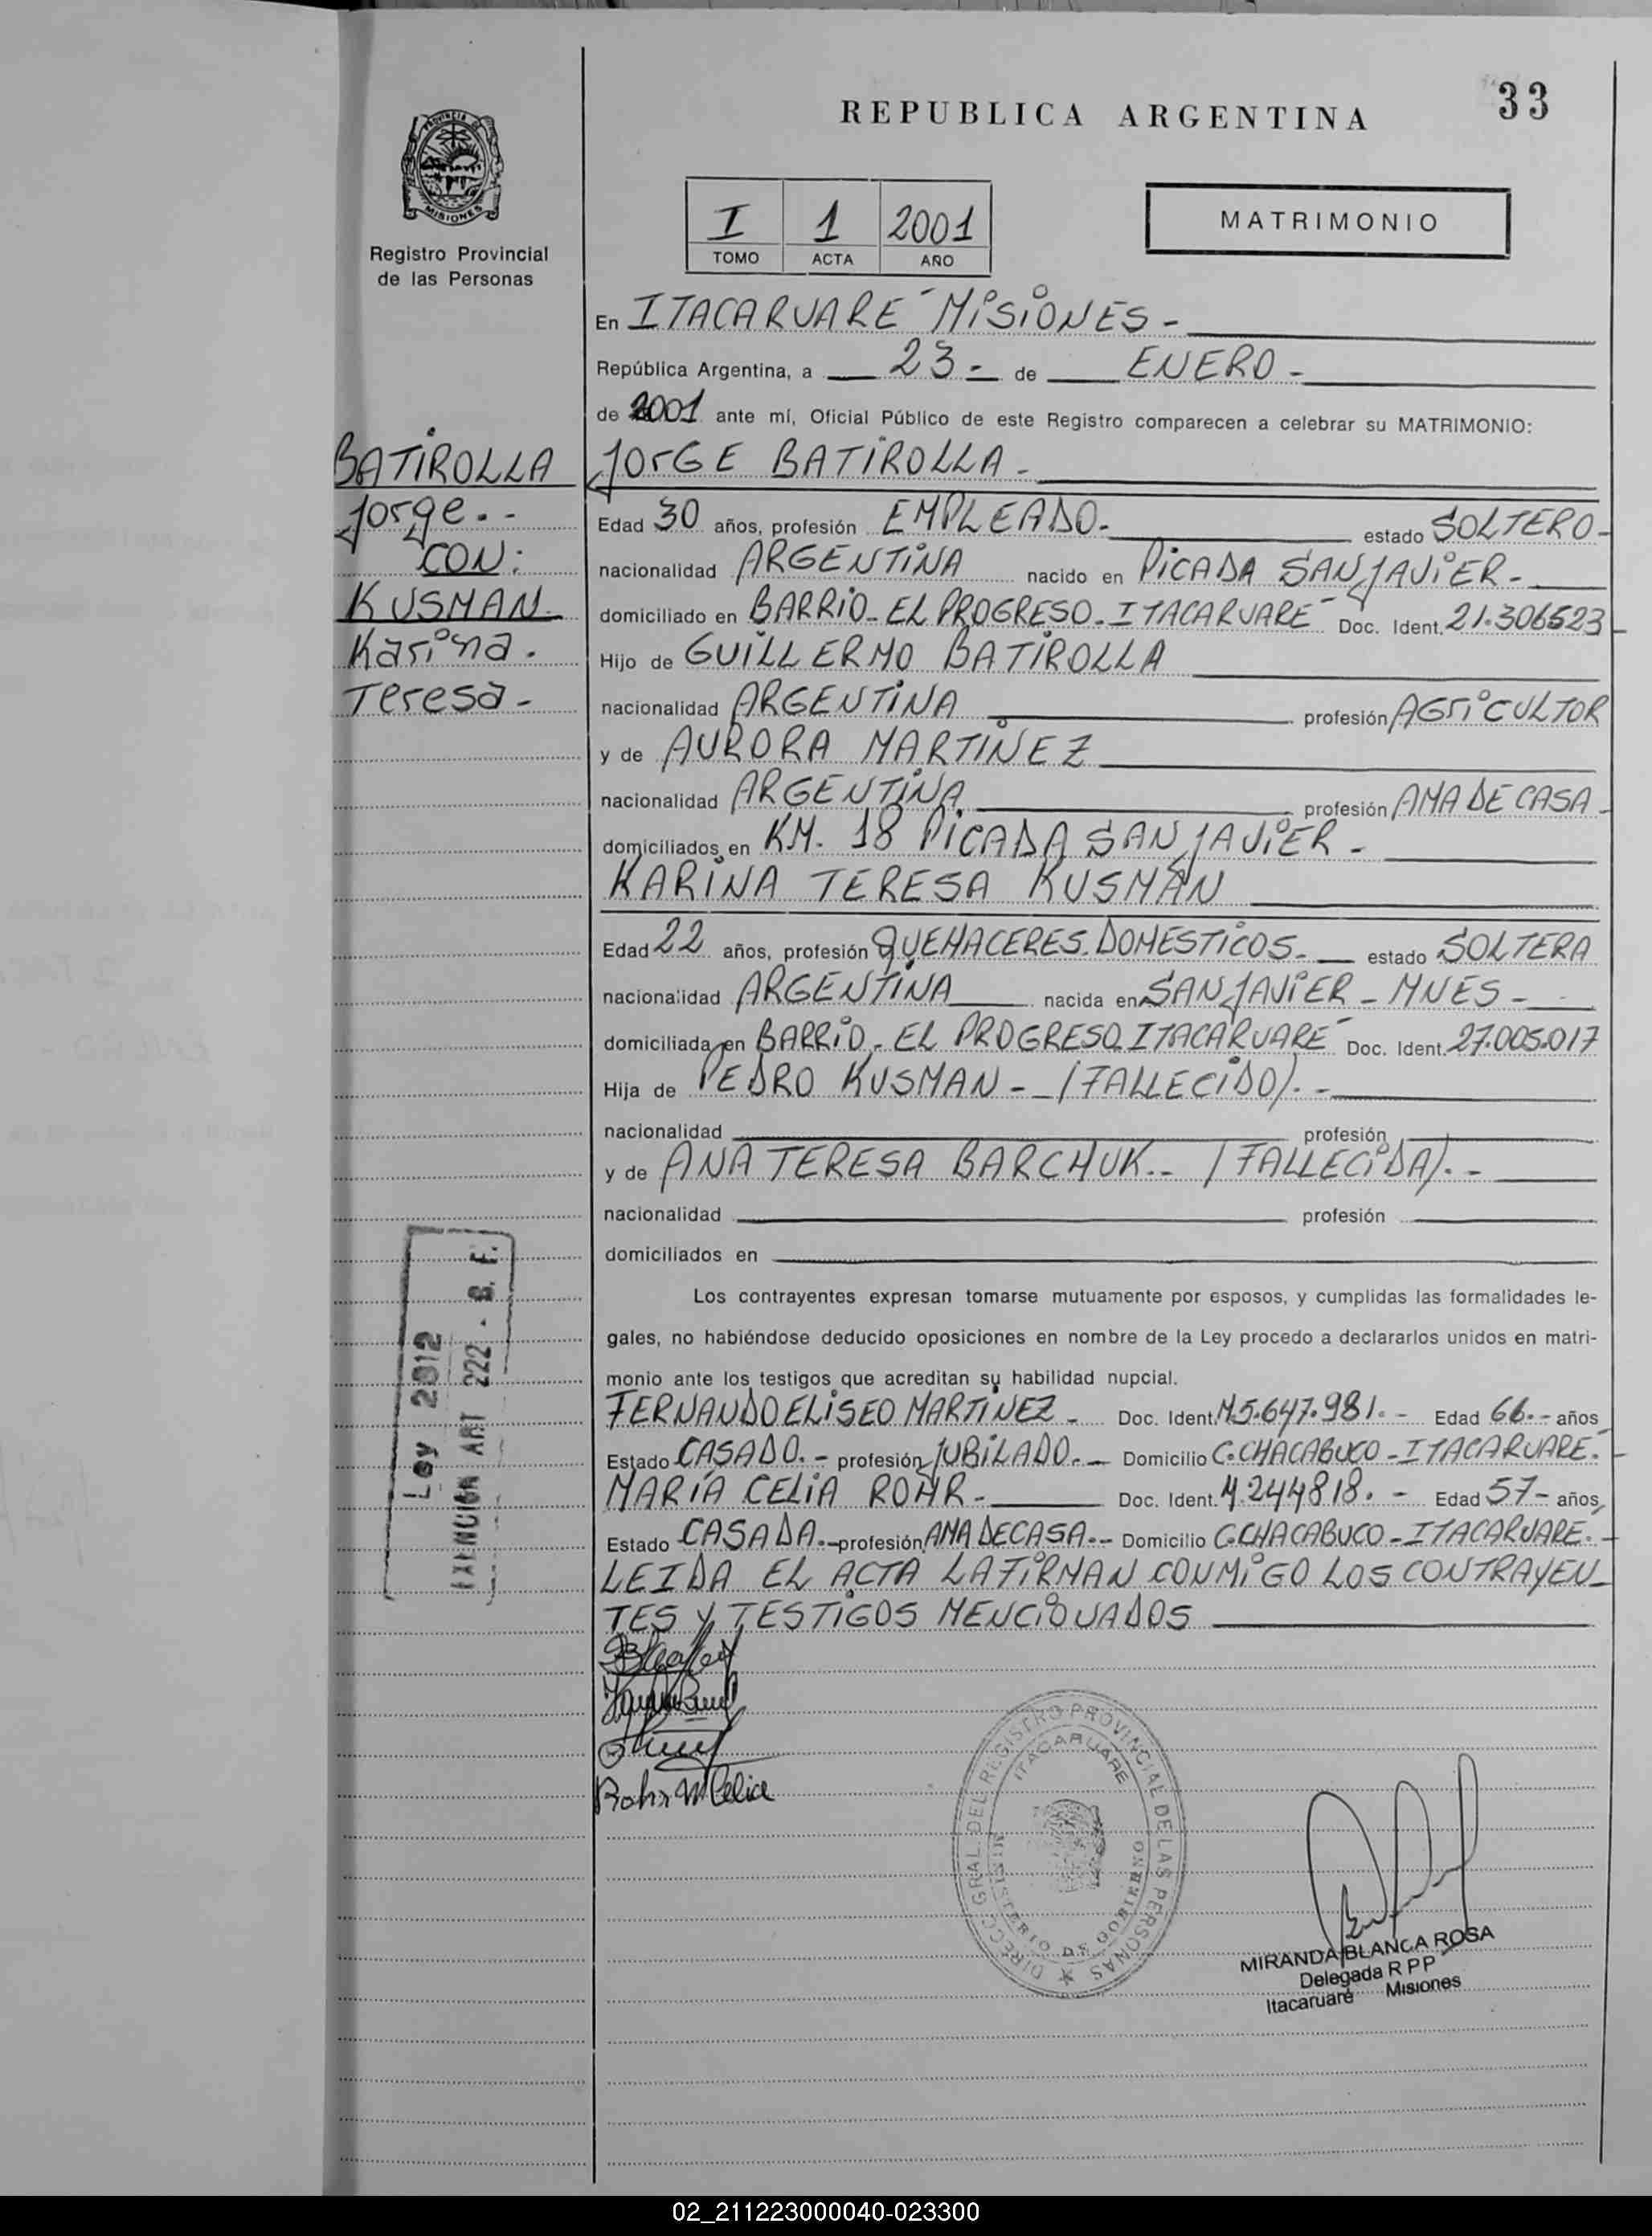 33
REPUBLICA ARGENTINA
PROVINCIA DE
MISIONES
Registro Provincial
de las Personas
I 1 2001
TOMO ACTA AÑO
MATRIMONIO
En ITACARUARE MISIONES -
República Argentina, a 23 - de ENERO -
de 2001 ante mí, Oficial Público de este Registro comparecen a celebrar su MATRIMONIO:
BATIROLLA
Jorge. -
CON:
KUSMAN.
Karina.
Teresa -
JORGE BATIROLLA -
Edad 30 años, profesión EMPLEADO. estado SOLTERO -
nacionalidad ARGENTINA nacido en PICADA SAN JAVIER -
domiciliado en BARRIO - EL PROGRESO - ITACARUARE Doc. Ident. 21.306523
Hijo de GUILLERMO BATIROLLA
nacionalidad ARGENTINA profesión AGRICULTOR
y de AURORA MARTINEZ
nacionalidad ARGENTINA profesión AMA DE CASA -
domiciliados en KM. 18 PICADA SAN JAVIER -
KARINA TERESA KUSMAN
Edad 22 años, profesión QUEHACERES. DOMESTICOS - estado SOLTERA
nacionalidad ARGENTINA nacida en SAN JAVIER - MNES -
domiciliada en BARRIO - EL PROGRESO ITACARUARE Doc. Ident. 27.005.017
Hija de PEDRO KUSMAN - (FALLECIDO). -
nacionalidad profesión
y de ANA TERESA BARCHUK. - (FALLECIDA). -
nacionalidad profesión
domiciliados en
Los contrayentes expresan tomarse mutuamente por esposos, y cumplidas las formalidades le-
gales, no habiéndose deducido oposiciones en nombre de la Ley procedo a declararlos unidos en matri-
monio ante los testigos que acreditan su habilidad nupcial.
FERNANDO ELISEO MARTINEZ - Doc. Ident. M5.647.981. - Edad 66. - años
Estado CASADO. - profesión JUBILADO. - Domicilio C. CHACABUCO - ITACARUARE.
MARÍA CELIA ROHR - Doc. Ident. 4.244818. - Edad 57 - años,
Estado CASADA. - profesión AMA DE CASA. - Domicilio C. CHACABUCO - ITACARUARE.
LEIDA EL ACTA LA FIRMAN CONMIGO LOS CONTRAYEN-
TES Y TESTIGOS MENCIONADOS
Ley 2812
EXENCIÓN ART 222 . S. F.
Rohr M Celia
DIRECC GRAL DEL REGISTRO PROVINCIAL DE LAS PERSONAS
ITACARUARE
MINISTERIO DE GOBIERNO
MIRANDA BLANCA ROSA
Delegada R P P
Itacaruaré Misiones
02_211223000040-023300